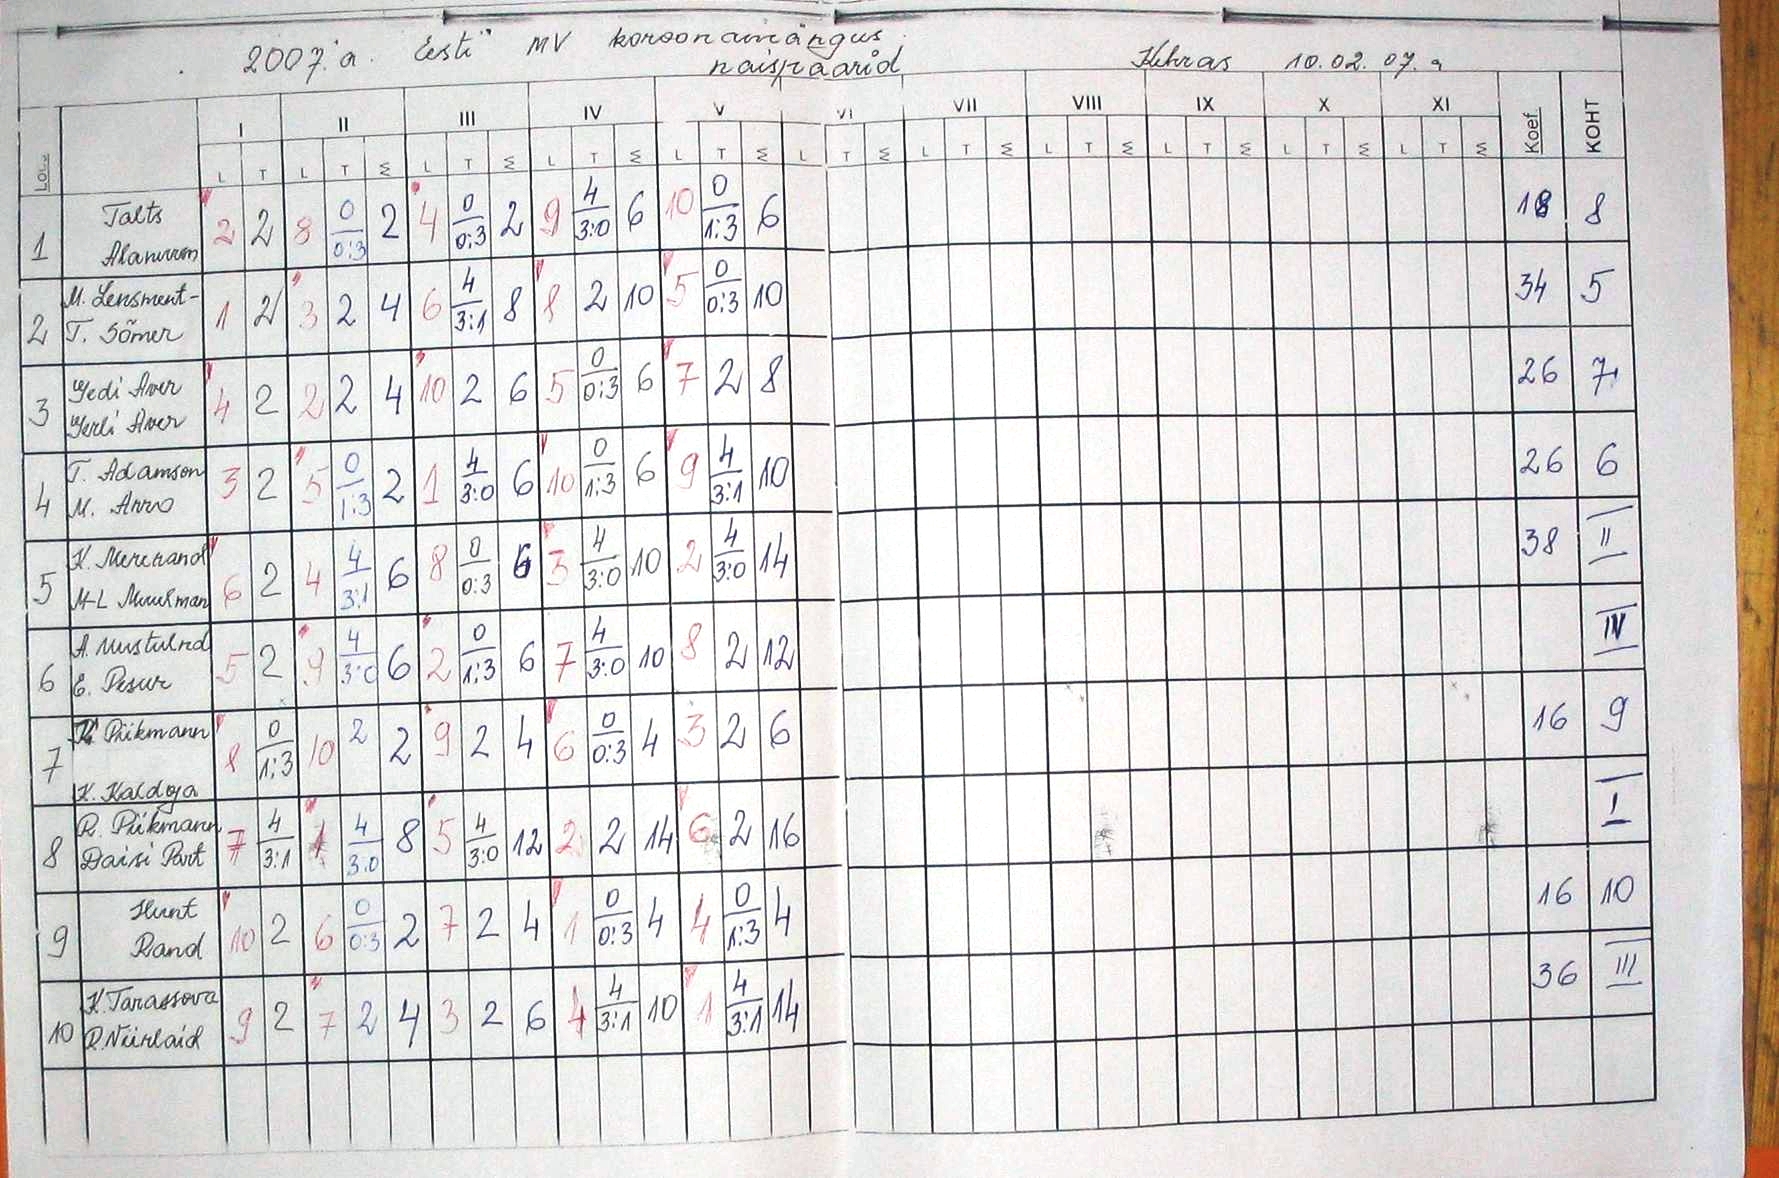 2007.a. Eesti MV koroonamängus
naispaarid Kehras 10.02.07.a
I II III IV V VI VII VIII IX X XI Koef КОНТ
L T L T Σ L T Σ L T Σ L T Σ L T Σ L T Σ L T Σ L T Σ L T Σ L T Σ
1 Talts 2 2 8 0 0:3 2 4 0 0:3 2 9 4 3:0 6 10 0 1:3 6 18 8
2 M. Lensment- 1 2 3 2 4 6 4 3:1 8 8 2 10 5 0 0:3 10 34 5
T. Sõmer
3 Gedi Aver 4 2 2 2 4 10 2 6 5 0 0:3 6 7 2 8 26 7
Gerli Aver
4 T. Adamson 3 2 5 0 1:3 2 1 4 3:0 6 10 0 1:3 6 9 4 3:1 10 26 6
M. Arro
5 K. Merirand 6 2 4 4 3:1 6 8 0 0:3 6 3 4 3:0 10 2 4 3:0 14 38 II
M-L Muulman
6 A. Mustulnd 5 2 9 4 3:0 6 2 0 1:3 6 7 4 3:0 10 8 2 12 IV
E. Pesur
7 K Piikmann 8 0 1:3 10 2 2 9 2 4 6 0 0:3 4 3 2 6 16 9
K. Kaldoja
8 R. Piikmann 7 4 3:1 1 4 3:0 8 5 4 3:0 12 2 2 14 6 2 16 I
Daisi Pärt
9 Hunt 10 2 6 0 0:3 2 7 2 4 1 0 0:3 4 4 0 1:3 4 16 10
Rand
10 K. Tarassova 9 2 7 2 4 3 2 6 4 4 3:1 10 1 4 3:1 14 36 III
R. Niinlaid